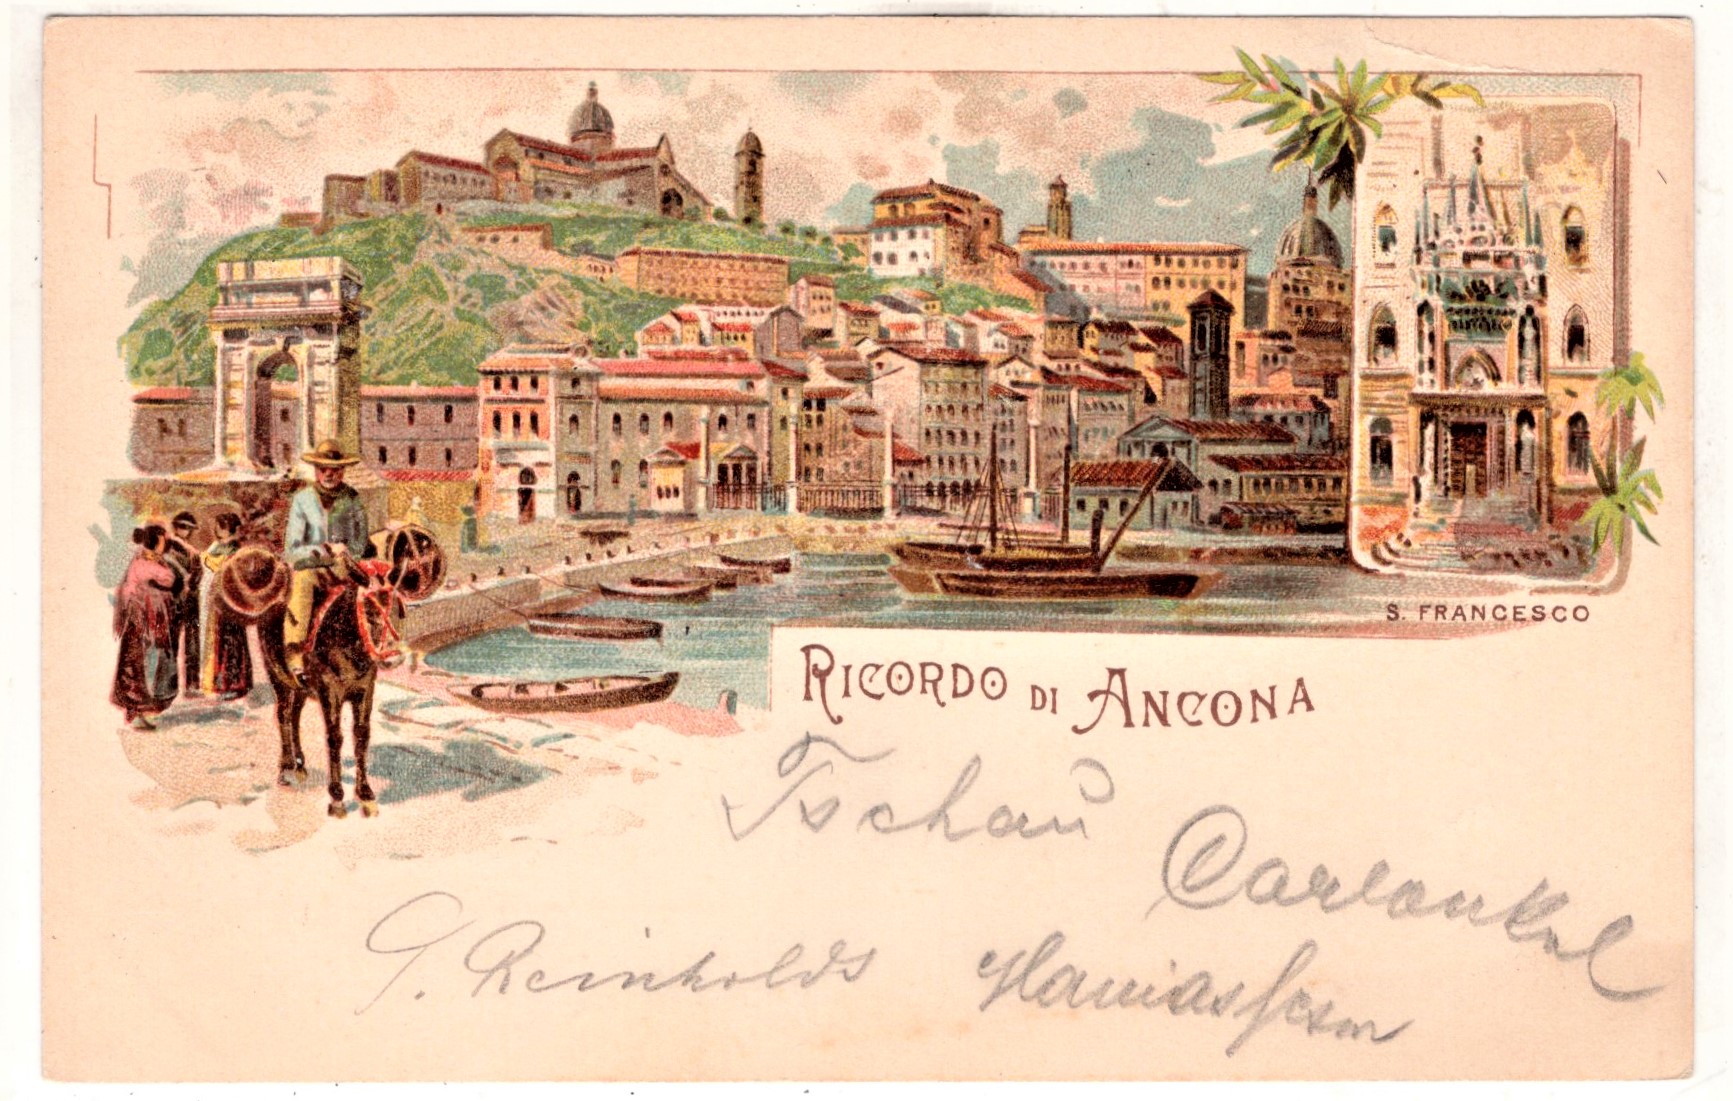 S. FRANCESCO
RICORDO DI ANCONA
Tschau
Carlonkel
G. Reinholds